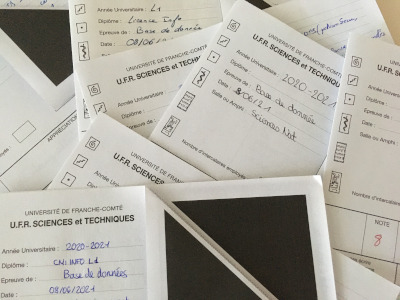 Année Universitaire : L1
Diplôme : Licence Info
Epreuve de : Base de données
08/06/
UNIVERSITÉ DE FRANCHE-COMTÉ
U.F.R. SCIENCES et TECHNIQU
Année Universitaire : 2020-2021
Diplôme :
Epreuve de : Base de données
Date : 8/06/21
Salle ou Amphi : Sciences Nat
Nombre d'intercalaires
UNIVERSITÉ DE FRANC
U.F.R. SCIENCES et
Année Universitaire :
Diplôme :
Epreuve de
Date :
Salle ou Amphi :
Nombre d'inter
NOTE
8
APPRÉCIATION
UNIVERSITÉ DE FRANCHE
U.F.R. SCIENCES
UNIVERSITÉ DE FRANCHE-COMTÉ
U.F.R. SCIENCES et TECHNIQUES
Année Universitaire : 2020-2021
Diplôme : CMI INFO L1
Epreuve de : Base de données
Date : 08/06/2021